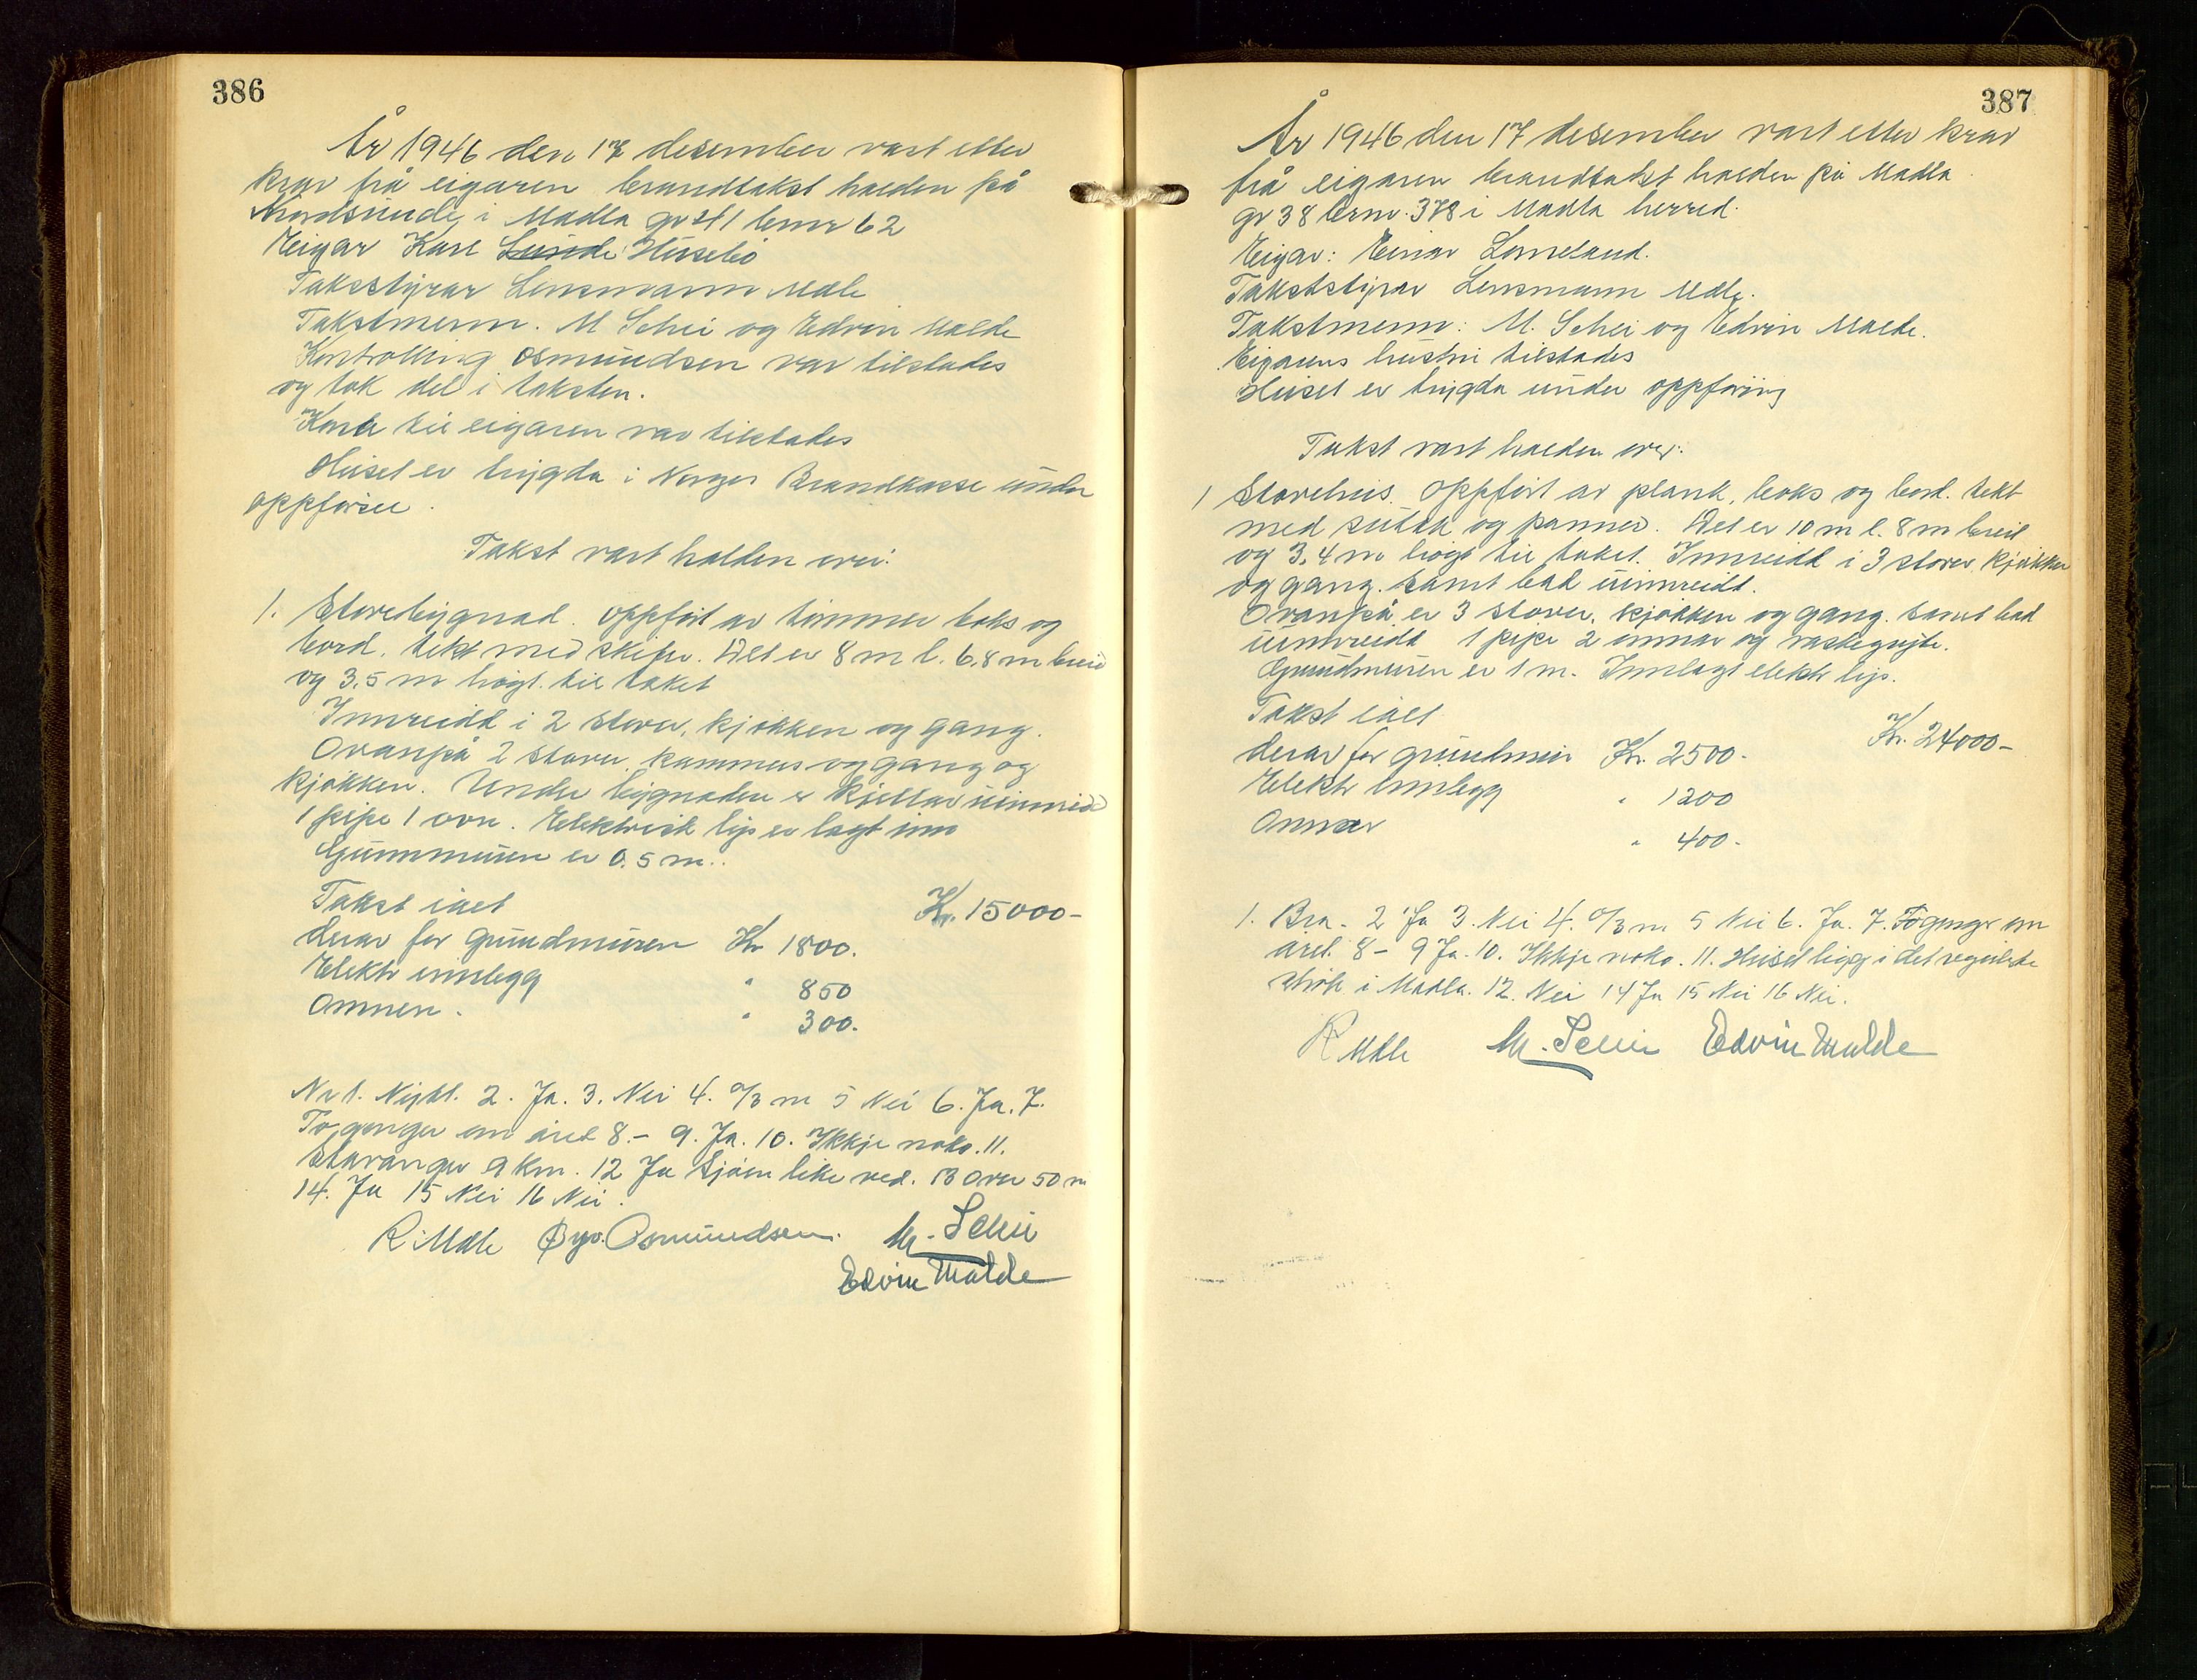 386
År 1946 den 17 desember vart etter
krav frå eigaren brandtakst halden på
i Madla gr 41 bnr 62
Eigar Karl Lunde Husebö
Takststyrar Lensmann Malde
Takstmenn. M Schei og Edvin Malde
Kontrolling Osmundsen var tilstades
og tok del i taksten.
Kona til eigaren var tilstades
Huset er trygda i Norges Brandkasse under
oppførsel.
Takst vart halden over:
1. Stovebygnad. Oppført av timmer boks og
bord. tekt med skifer. Det er 8 m l. 6,8 m breid
og 3,5 m høgt til taket
Innreidd i 2 stover, kjøkken og gang.
Ovanpå 2 stover, kammers og gang og
kjøkken. Under bygnaden er kjellar uinnreid
1 pipe 1 ovn. Elektrisk lys er lagt inn
Grunnmuren er 0.5 m.
Takst ialt Kr. 15000-
derav for grundmuren Kr 1800.
Elektr innlegg " 850
Omnen. " 300.
Nr 1. Nybl. 2. Ja. 3. Nei 4. 0/3 m 5 Nei 6. Ja. 7.
To gonger om året 8.- 9. Ja. 10. Ikkje noko. 11.
Stavanger 9 km. 12 Ja Sjøen like ved. 13 Over 50 m
14. Ja 15 Nei 16 Nei.
R. Malde Øyv. Osmundsen. M. Schei
Edvin Malde
387
År 1946 den 17 desember vart etter krav
frå eigaren brandtakst halden på Madla
gr 38 brnr. 378 i Madla herred.
Eigar: Einar Lomeland.
Takststyrar Lensmann Malde.
Takstmenn: M. Schei og Edvin Malde.
Eigarens hustru tilstades
Huset er trygda under oppføring
Takst vart halden over:
1 Stovehus. Oppført av plank, boks og bord. tekt
med sutak og panner. Det er 10 m l. 8 m breid
og 3,4 m høgt til taket. Innreidd i 3 stover kjøkken
og gang. Samt bad uinnreidt.
Ovanpå er 3 stover, kjøkken og gang. Samt bad
uinnreidt 1 pipe 2 omnar og vaskegryte.
Grundmuren er 1 m. Innlagt elektr lys.
Takst ialt Kr. 24000-
derav for grundmur Kr. 2500-
Elektr innlegg " 1200
Omnar " 400-
1. Bra - 2 Ja 3. Nei 4. 0/3 m 5 Nei 6. Ja. 7. To gongr om
året. 8 - 9 Ja. 10. Ikkje noko. 11. Huset ligg i det regulerte
strök i Madla. 12. Nei 14 Ja 15 Nei 16 Nei.
R Malde M. Schei Edvin Malde